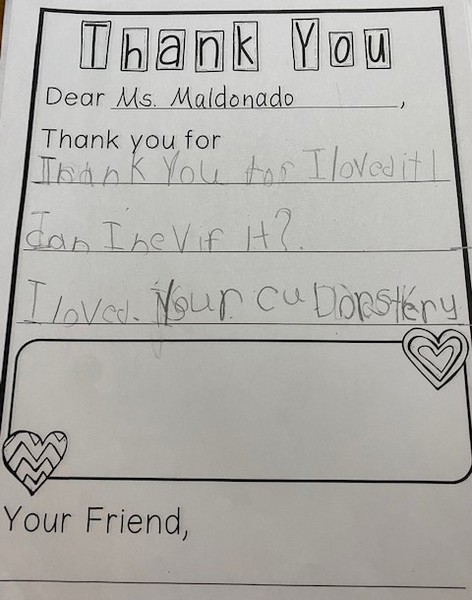 Thank You
Dear Ms. Maldonado,
Thank you for
Thank You for I loved it!
Can I heV if It?.
I loved. Your cu
Your Friend,